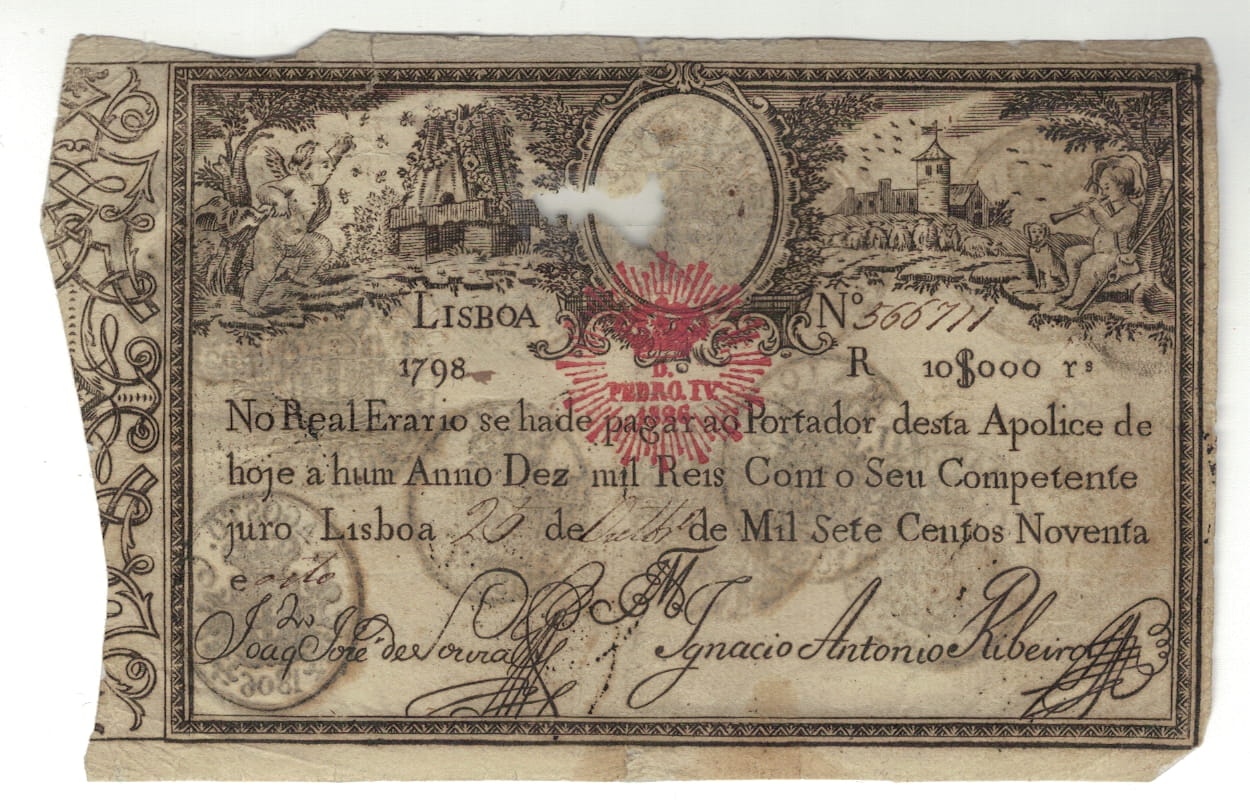 LISBOA
Nº 566711
1798
R 10$000 rˢ
D.
PEDRO. IV
1826
No Real Erario se hade pagar ao Portador desta Apolice de
hoje a hum Anno Dez mil Reis Com o Seu Competente
juro Lisboa 23 de Outbrº de Mil Sete Centos Noventa
e oito
Joaq José de Souza
Ignacio Antonio Ribeiro